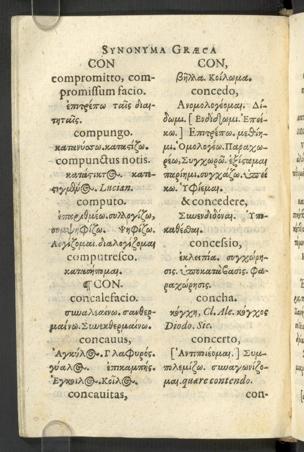 SYNONYMA GRÆCA
CON
compromitto, com-
promissum facio.
ἐπιτρέπω ταῖς διαι-
τηταῖς.
compungo.
κατανύσσω. κατασίζω.
compunctus notis.
κατάστικτος. κατε-
στιγμένος. Lucian.
computo.
συλλογίζω,
ψηφίζω.
λογίζομαι. διαλογίζομαι
computresco.
κατασήπομαι.
¶ CON.
concalefacio.
συναλεαίνω. συνθερ-
μαίνω. Συνεκθερμαίνω.
concauus,
Ἀγκύλος. Γλαφυρός.
γύαλος. ἐπικαμπής.
Ἔγκοιλος. Κοῖλος.
concauitas,
CON,
Κοίλωμα.
concedo,
Ἀνομολογέομαι. Δί-
δωμι. [ Ἐνδίδωμι. Ἐπεί-
κω. ] Ἐπιτρέπω. μεθίη-
μι. Ὁμολογέω. Παραχω-
ρέω. Συγχωρῶ. ἐξίσταμαι
παρίημι. συγχάζω. Ὑπεί-
κω. Ὑφίεμαι.
& concedere,
Συνενδιδόναι. Ὑπο-
concessio,
συγχώρη-
σις. Ὑποκατάβασις. Πα-
ραχώρησις.
concha.
κόγχη, Cl. Ale. κόγχος
Diodo. Sic.
concerto,
Συμ-
πολεμίζω. συναγωνίζο-
μαι. quære contendo.
con-